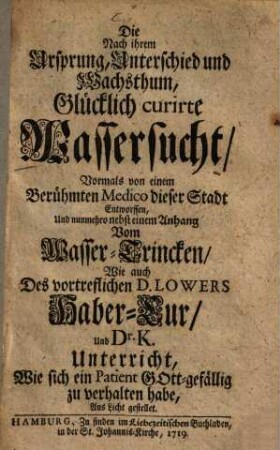 Die
Nach ihrem
Ursprung, Unterschied und
Wachsthum,
Glücklich curirte
Wassersucht/
Vormals von einem
Berühmten Medico dieser Stadt
Entworffen,
Und nunmehro nebst einem Anhang
Vom
Wasser-Trincken/
Wie auch
Des vortreflichen D. LOWERS
Haber-Cur/
Und Dr. K.
Unterricht,
Wie sich ein Patient GOtt-gefällig
zu verhalten habe,
Ans Licht gestellet.
HAMBURG, Zu finden im Liebezeitischen Buchladen,
in der St. Johannis-Kirche, 1719.